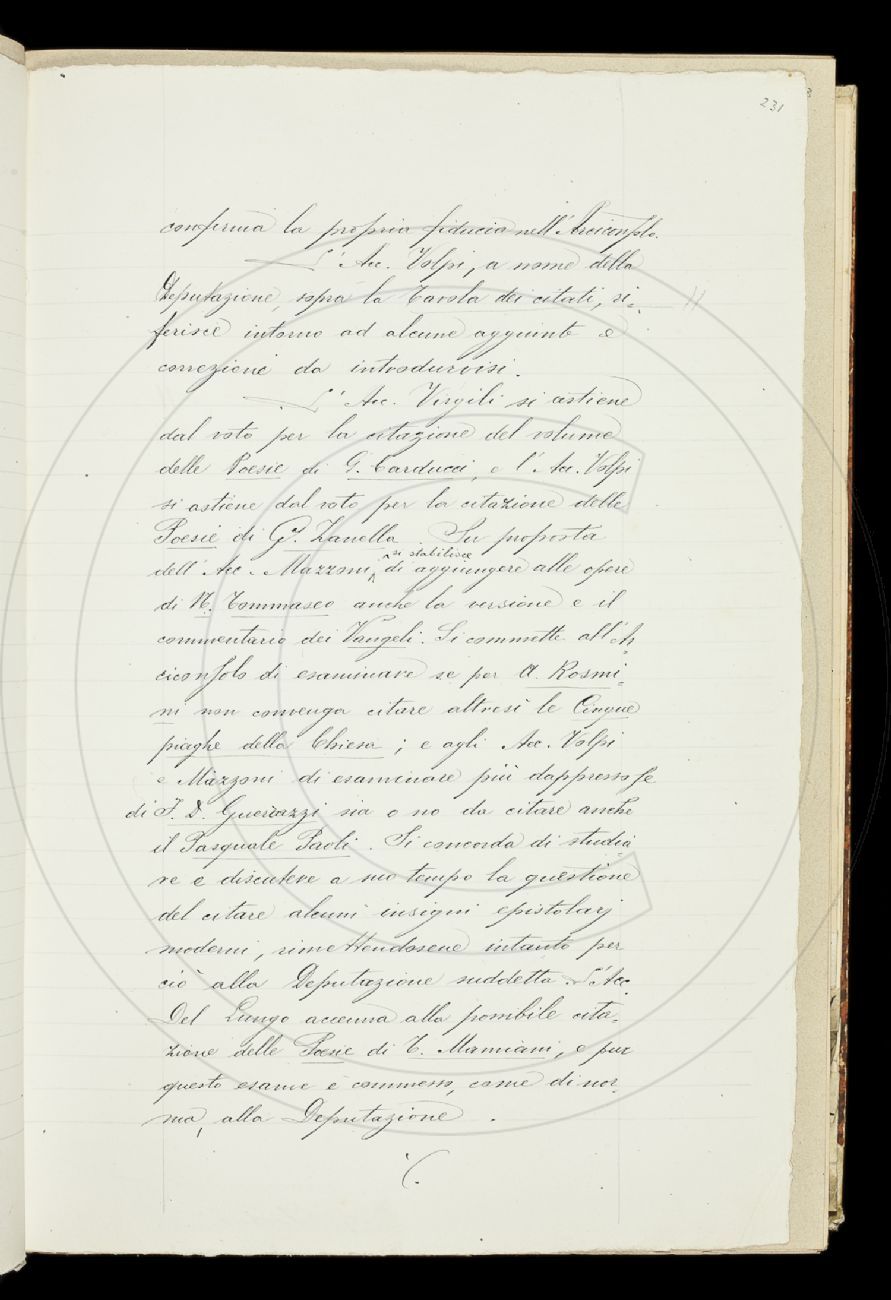 231
conferma la propria fiducia nell'Arciconsolo.
L'Acc. Volpi, a nome della
Deputazione, sopra la Tavola dei citati, ri-
ferisce intorno ad alcune aggiunte e
correzioni da introdurvisi.
L'Acc. Virgili si astiene
dal voto per la citazione del volume
delle Poesie di G. Carducci, e l'Acc. Volpi
si astiene dal voto per la citazione delle
Poesie di G. Zanella. Su proposta
dell'Acc. Mazzoni, si stabilisce di aggiungere alle opere
di N. Tommaseo anche la versione e il
commentario dei Vangeli. Si commette all'Ar-
ciconsolo di esaminare se per A. Rosmi-
ni non convenga citare altresì le Cinque
piaghe della Chiesa; e agli Acc. Volpi
e Mazzoni di esaminare più dappresso se
di F. D. Guerrazzi sia o no da citare anche
il Pasquale Paoli. Si concorda di studia-
re e discutere a suo tempo la questione
del citare alcuni insigni epistolarj
moderni, rimettendosene intanto per
ciò alla Deputazione suddetta. L'Acc.
Del Lungo accenna alla possibile cita-
zione delle Poesie di T. Mamiani, e pur
questo esame è commesso, come di nor-
ma, alla Deputazione.